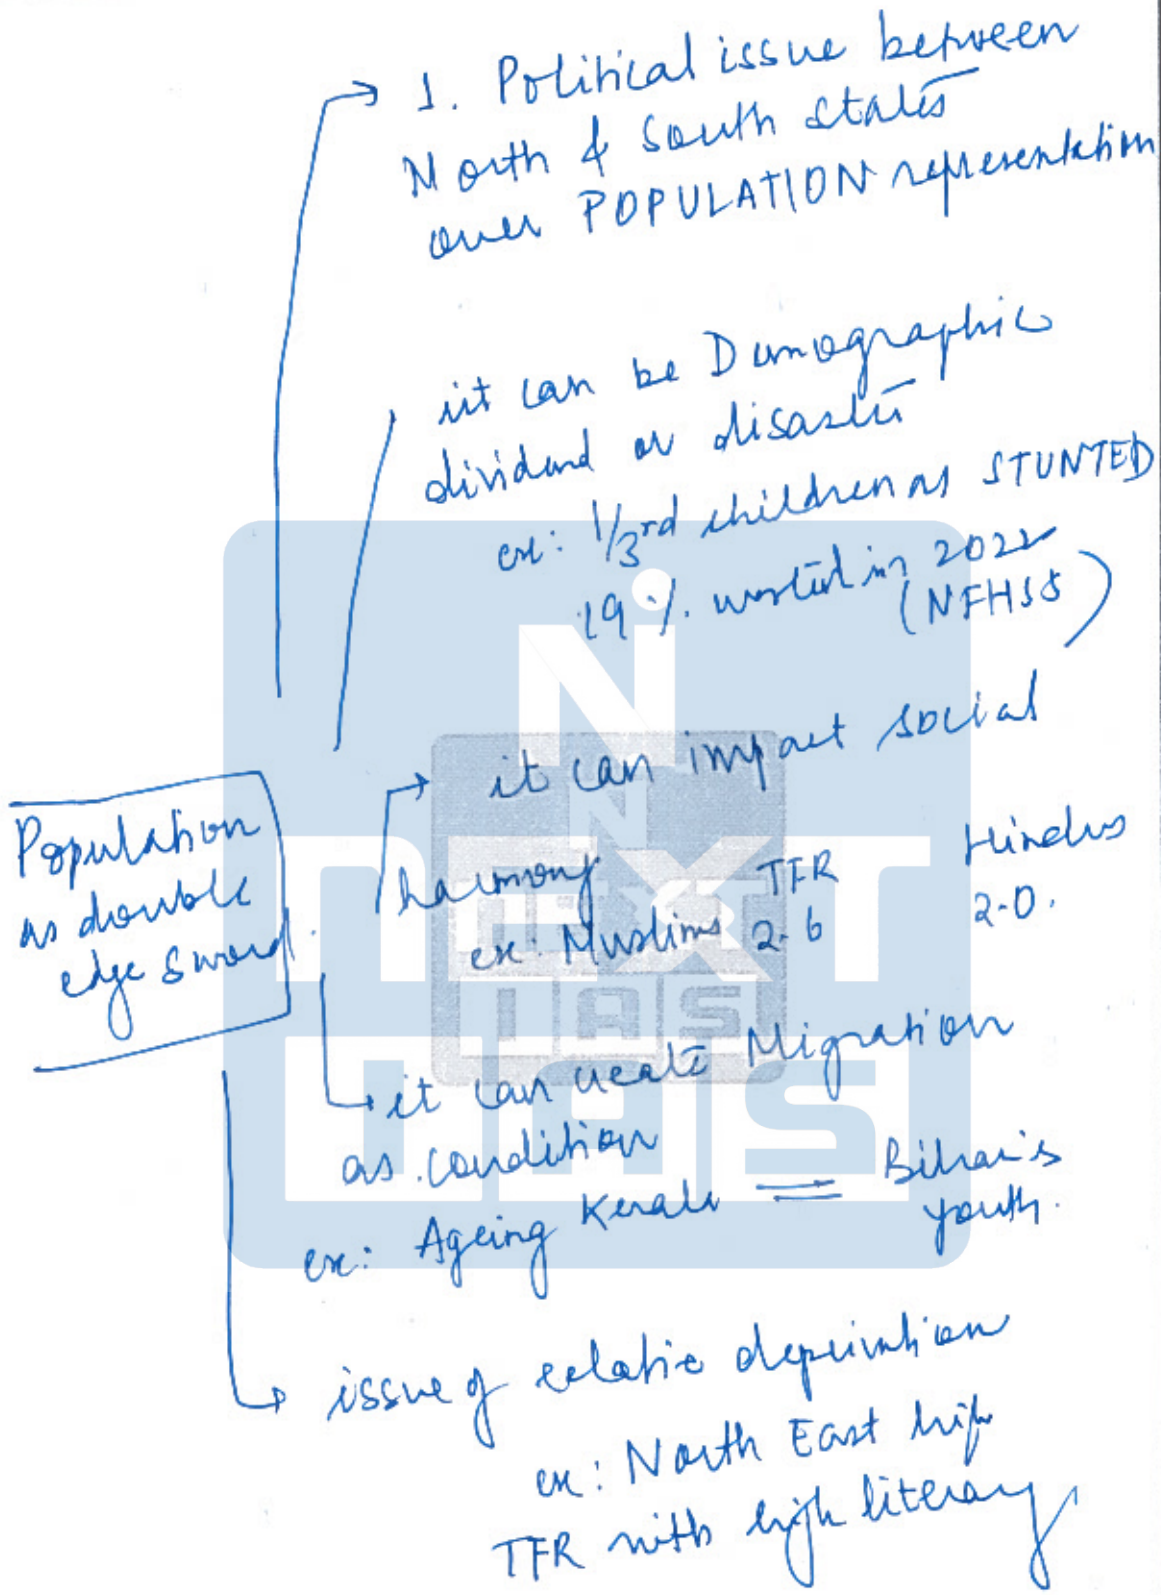 1. Political issue between
North & South states
over POPULATION representation
it can be Demographic
dividend or disaster
ex: 1/3rd children as STUNTED
19 %. wasted in 2022
(NFHS5)
it can impact social
harmony
TFR
Hindus
ex: Muslims 2.6
2.0.
Population
as double
edge sword.
it can create Migration
as condition
ex: Ageing Kerala = Bihar's
youth.
issue of relative deprivation
ex: North East high
TFR with high literacy
NEXT
IAS
NEXT
IAS